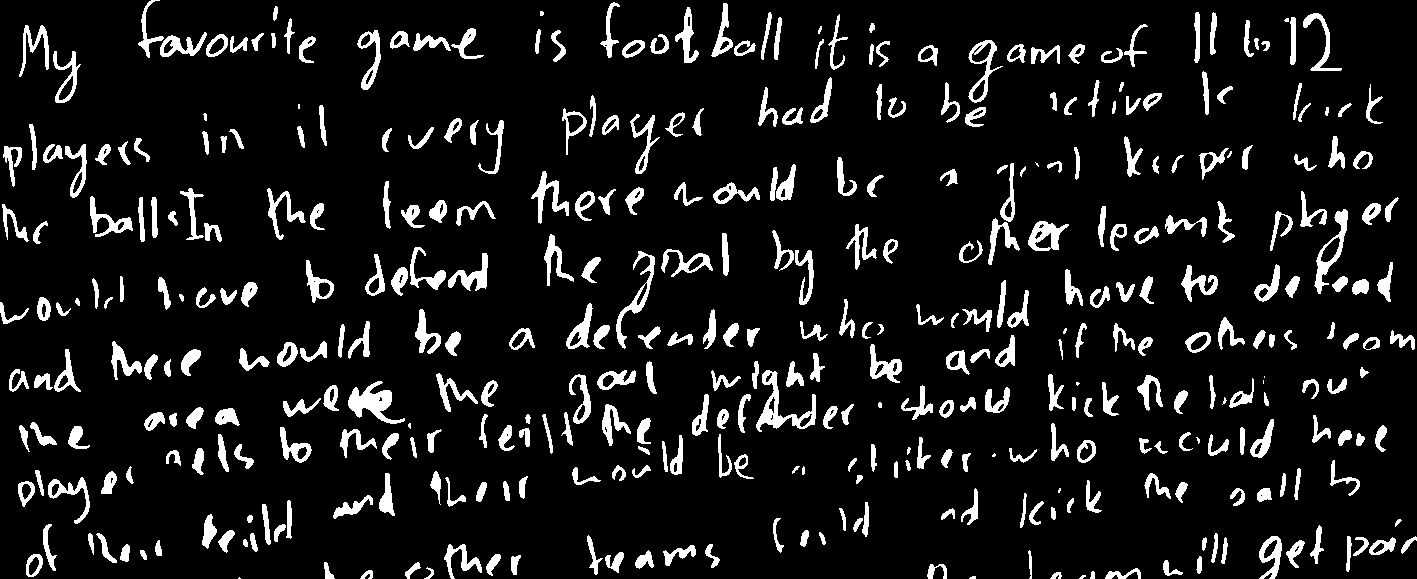 My favourite game is football it is a game of 11 to 12
players in it every player had to be active to kick
the ball. In the team there would be a goal keeper who
would have to defend the goal by the other team's player
and there would be a defender who would have to defend
the area were the goal might be and if the others team
player gets to their feild the defender should kick the ball out
of their feild and their would be a striker who would have
other teams feild and kick the ball to
team will get